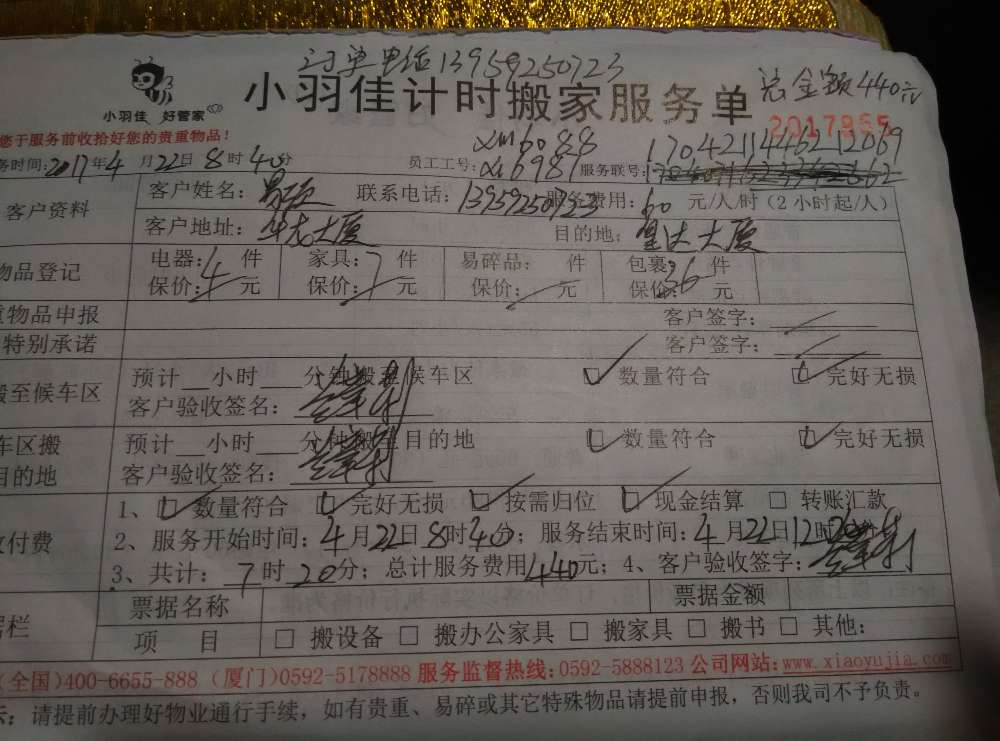 订单电话13959250723
小羽佳 好管家
小羽佳计时搬家服务单
总金额440元
您于服务前收拾好您的贵重物品！
2017955
务时间：2017年4月22日8时40分
员工工号：xm6088 xm6981
服务联号：1704211446212069
客户资料
客户姓名： 联系电话：13959250723 服务费用：60元/人/时（2小时起/人）
客户地址：华龙大厦 目的地：皇达大厦
物品登记
电器：4件 家具：7件 易碎品： 件 包裹：36件
保价： 元 保价： 元 保价： 元 保价： 元
重物品申报 客户签字：
特别承诺 客户签字：
搬至候车区
预计__小时___分钟搬至候车区 数量符合 完好无损
客户验收签名：
车区搬
目的地
预计__小时___分钟搬至目的地 数量符合 完好无损
客户验收签名：
收付费
1、数量符合 完好无损 按需归位 现金结算 转账汇款
2、服务开始时间：4月22日8时40分；服务结束时间：4月22日12时
3、共计：7时20分；总计服务费用440元；4、客户验收签字：
票据名称 票据金额
据栏
项 目 搬设备 搬办公家具 搬家具 搬书 其他：
(全国)400-6655-888 (厦门)0592-5178888 服务监督热线：0592-5888123 公司网站：www.xiaoyujia.com
示：请提前办理好物业通行手续，如有贵重、易碎或其它特殊物品请提前申报，否则我司不予负责。